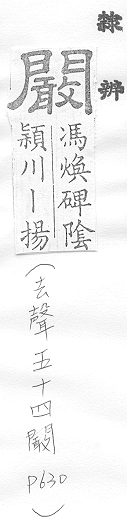 隸辨
闞
馮煥碑陰
頴川丨揚
(去聲五十四闞 p630)